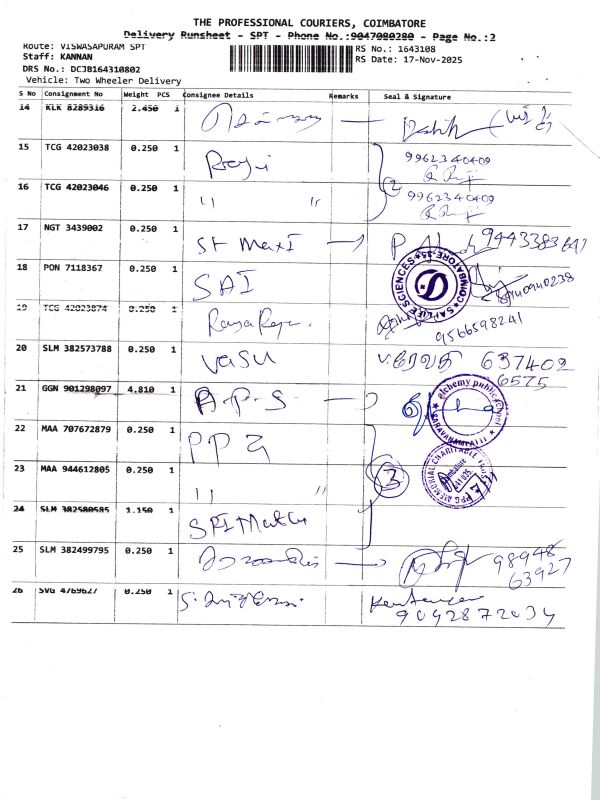 THE PROFESSIONAL COURIERS, COIMBATORE
Delivery Runsheet - SPT - Phone No.:9047080280 - Page No.:2
Route: VISWASAPURAM SPT
RS No.: 1643108
Staff: KANNAN
RS Date: 17-Nov-2025
DRS No.: DCJB164310802
Vehicle: Two Wheeler Delivery
S No Consignment No Weight PCS Consignee Details Remarks Seal & Signature
14 KLK 8289316 2.450 1
15 TCG 42023038 0.250 1 Raji 9962340409
16 TCG 42023046 0.250 1 " " 2 9962340409
17 NGT 3439002 0.250 1 St Maxi
18 PON 7118367 0.250 1 SAI
SAI LIFE SCIENCES COIMBATORE-35
19 TCG 42023874 0.250 1 9566598241
20 SLM 382573788 0.250 1 Vasu வ.ரேவதி 637402
6575
21 GGN 901298097 4.810 1 A.P.S
alchemy public school SARAVANAMPATTI
22 MAA 707672879 0.250 1 PPG
23 MAA 944612805 0.250 1 " " 3
PPG MEMORIAL CHARITABLE TRUST Coimbatore 641 035.
24 SLM 382580585 1.150 1 SRI
25 SLM 382499795 0.250 1 98948
63927
26 SVG 4769627 0.250 1
9042872034